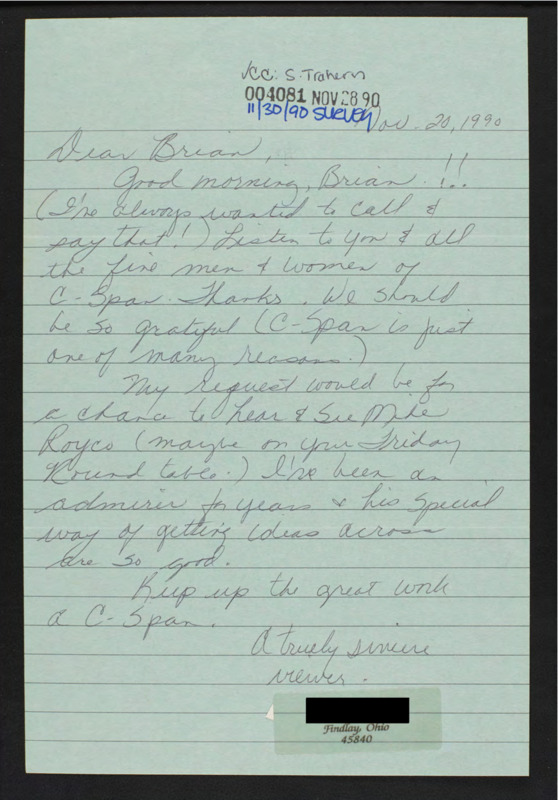 √CC: S. Trahern
004081 NOV 28 90
11/30/90 SURVEY
Nov. 20, 1990
Dear Brian,
Good morning, Brian. !!
(I've always wanted to call &
say that!) Listen to you & all
the fine men & women of
C-Span. Thanks. We should
be so grateful (C-Span is just
one of many reasons.)
My request would be for
a chance to hear & see Mike
Royco (maybe on your Friday
Round table.) I've been an
admirer for years & his special
way of getting ideas across
are so good.
Keep up the great work
a C-Span.
A truely sincere
viewer.
Findlay, Ohio
45840